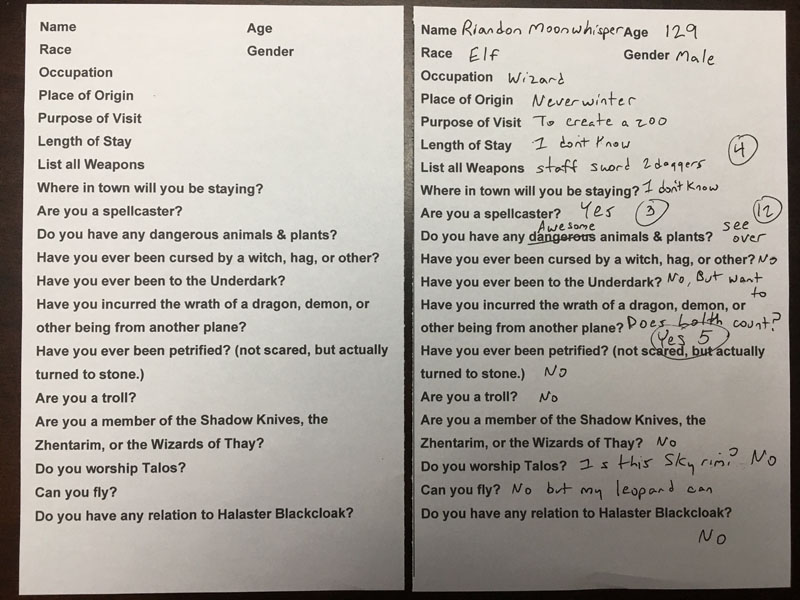 Name
Age
Race
Gender
Occupation
Place of Origin
Purpose of Visit
Length of Stay
List all Weapons
Where in town will you be staying?
Are you a spellcaster?
Do you have any dangerous animals & plants?
Have you ever been cursed by a witch, hag, or other?
Have you ever been to the Underdark?
Have you incurred the wrath of a dragon, demon, or
other being from another plane?
Have you ever been petrified? (not scared, but actually
turned to stone.)
Are you a troll?
Are you a member of the Shadow Knives, the
Zhentarim, or the Wizards of Thay?
Do you worship Talos?
Can you fly?
Do you have any relation to Halaster Blackcloak?
Name Riandon Moonwhisper Age 129
Race Elf Gender Male
Occupation Wizard
Place of Origin Neverwinter
Purpose of Visit To create a zoo
Length of Stay I dont know
4
List all Weapons staff sword 2 daggers
Where in town will you be staying? I don't know
Are you a spellcaster? Yes 3 12
Awesome see
Do you have any dangerous animals & plants? over
Have you ever been cursed by a witch, hag, or other? No
Have you ever been to the Underdark? No, But want
to
Have you incurred the wrath of a dragon, demon, or
other being from another plane? Does bolth count?
Yes 5
Have you ever been petrified? (not scared, but actually
turned to stone.) No
Are you a troll? No
Are you a member of the Shadow Knives, the
Zhentarim, or the Wizards of Thay? No
Do you worship Talos? Is this Skyrim? No
Can you fly? No but my leopard can
Do you have any relation to Halaster Blackcloak?
No